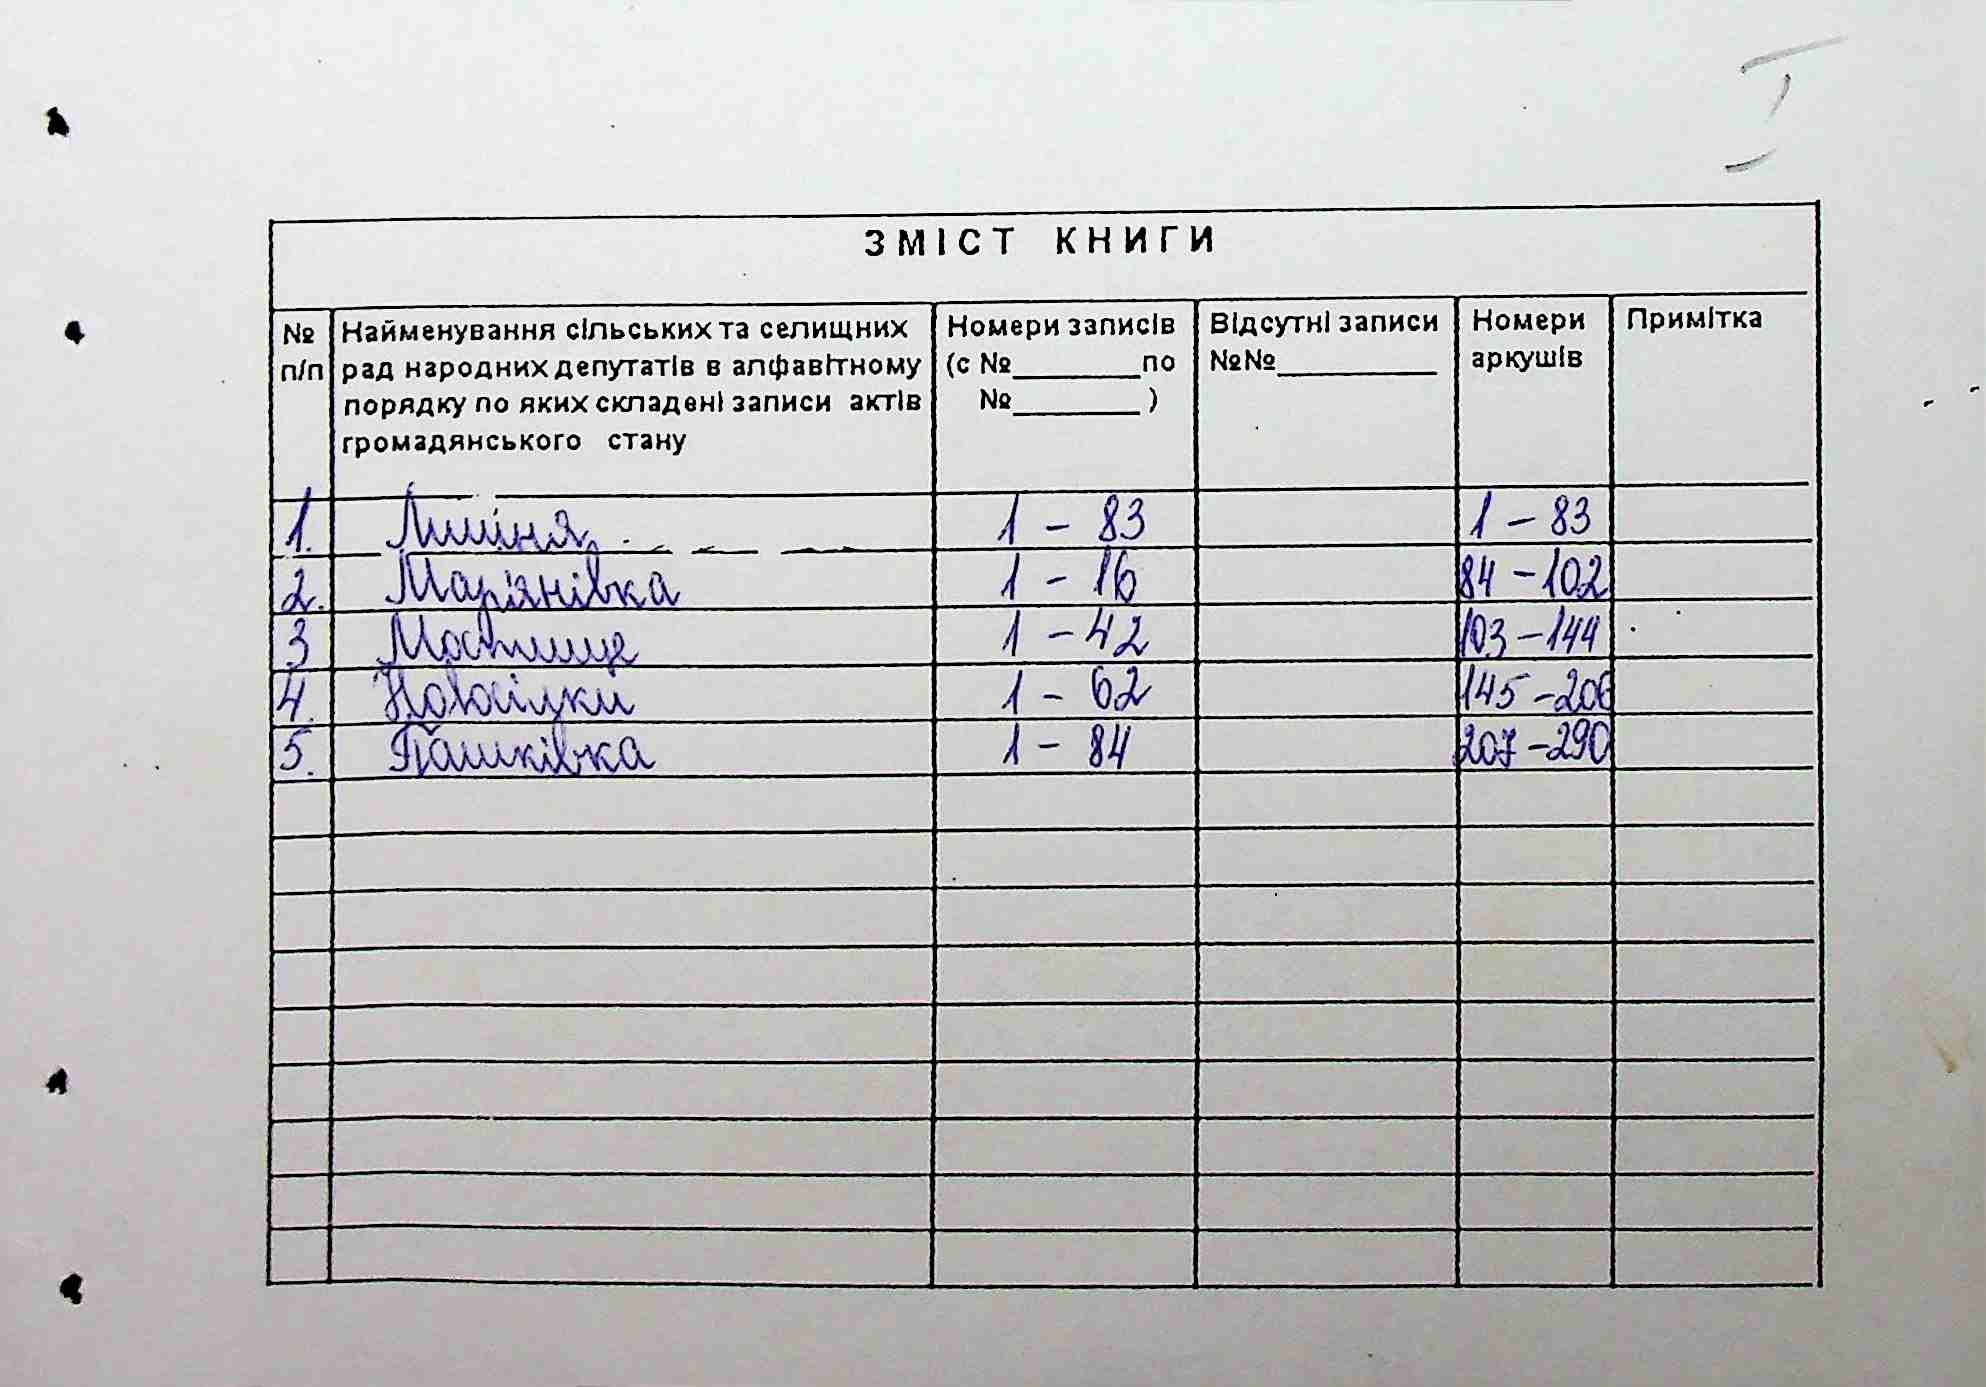 І
ЗМІСТ КНИГИ
№ п/п
Найменування сільських та селищних
рад народних депутатів в алфавітному
порядку по яких складені записи актів
громадянського стану
Номери записів
(с №________по
№________)
Відсутні записи
№№__________
Номери
аркушів
Примітка
1. Лишня 1 - 83 1 - 83
2. Мар'янівка 1 - 16 84 - 102
3 Мостище 1 - 42 103 - 144
4. Новосілки 1 - 62 145 - 206
5. Пашківка 1 - 84 207 - 290